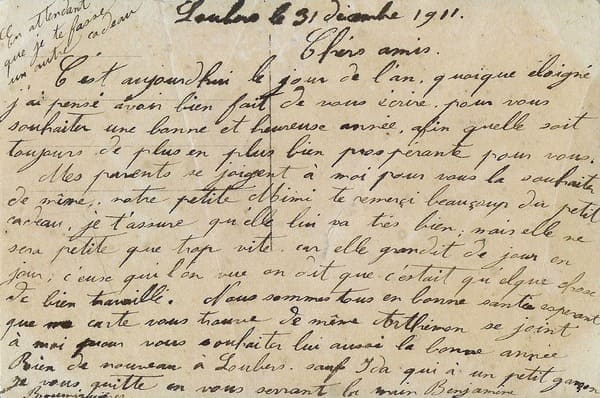 En attendant
que je te fasse
un autre cadeau
Loubers le 31 decembre 1911.
Chers amis.
C'est aujourd'hui le jour de l'an, quoique éloigné
j'ai pensé avoir bien fait de vous écrire, pour vous
souhaiter une bonne et heureuse année, afin quelle soit
toujours de plus en plus bien prospérante pour vous.
Mes parents se joigent a moi pour vous la souhaiter
de même, notre petite Mimi te remerçi beaucoup du petit
cadeau, je t'assure qu'elle lui va très bien, mais elle ne
sera petite que trop vite, car elle grandit de jour en
jour; c'euse qui l'on vue on dit que c'était quelque chose
de bien travaillé. Nous sommes tous en bonne santé esperant
que ma carte vous trouve de même Arthémon se joint
à moi pour vous souhaiter lui aussi la bonne année
Rien de nouveau à Loubers, sauf Ida qui à un petit garçon
Je vous quitte en vous serrant la main Benjamine